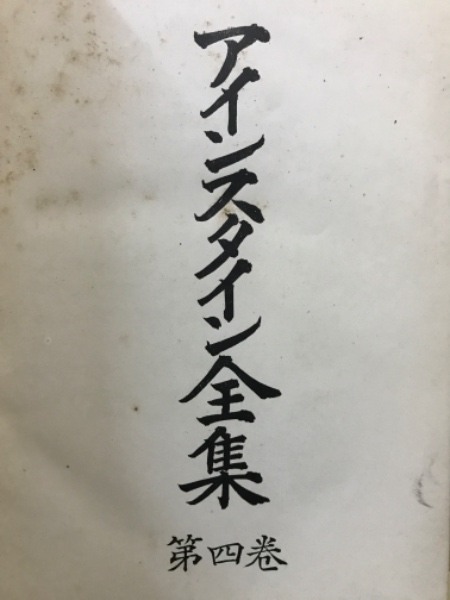 アインスタイン全集
第四巻